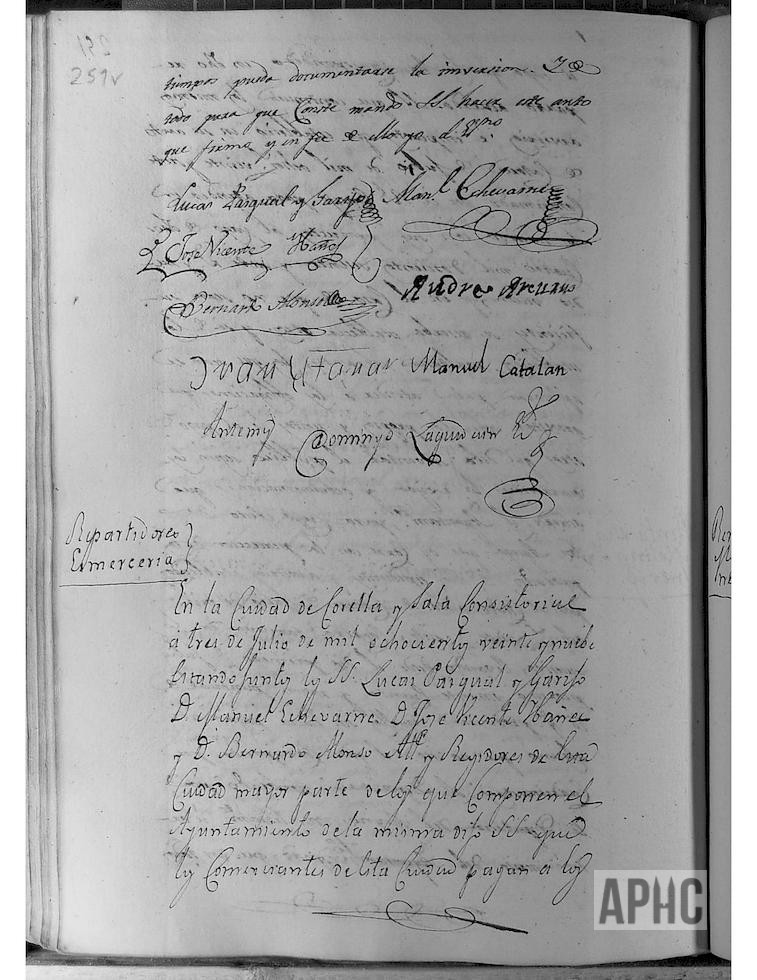 251
251v
tiempos pueda documentarse la inversion. Y de
todo para que Conste mandò SS. hacer este auto
que firmò y en fee de ello yo el Essno
Lucas Pasqual y Garijo Manl. Echevarne
Dn Jose Vicente Ibañes
Bernardo Alonso Andres Arenaus
Juan Manuel Catalan
Antemi
Domingo Laguardia Essno
Repartidores
Esmerceria
En la Ciudad de Corella y Sala Consistorial
á tres de Julio de mil ochocientos veinte y nuebe
Estando juntos los SS. Lucas Pasqual y Garijo
D. Manuel Echevarne D. Jose Vicente Ibañes
y D. Bernardo Alonso Alle. y Regidores de Esta
Ciudad mayor parte de los que Componen el
Ayuntamiento de la misma dijo SS. que
los Comerciantes de Esta Ciudad pagan á los
APHC